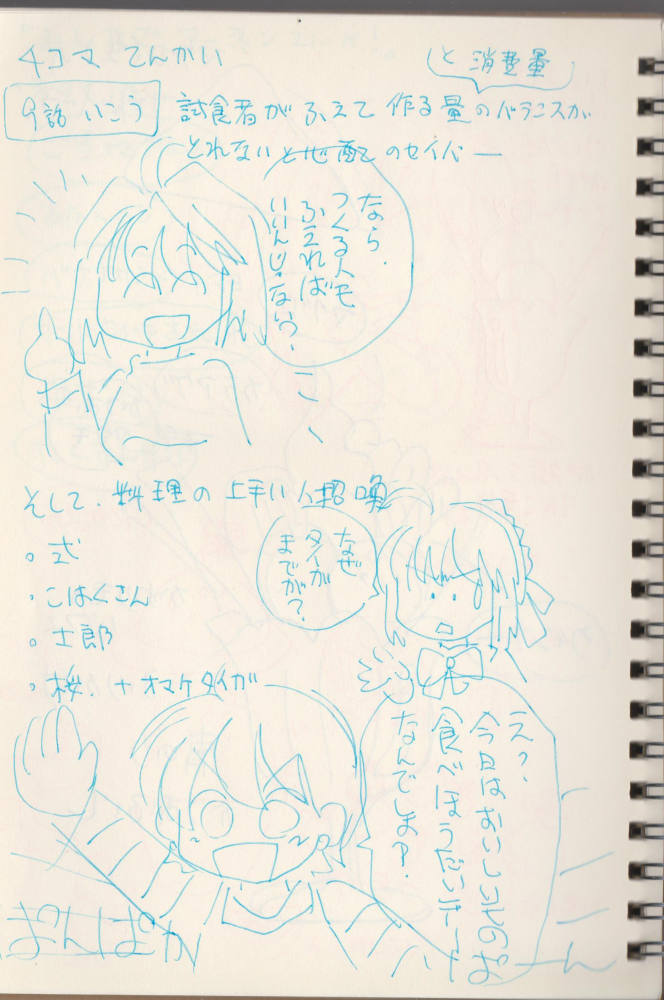 4コマ てんかい
と 消費量
9話 いこう
試食者が ふえて 作る量のバランスが
とれない と心配 のセイバー
なら、
つくる人も
ふえれば
いいんじゃない?
そして、料理の上手い人招喚
なぜ
タイガ
までが?
。式
・こはくさん
。士郎
・桜 + オマケタイガ
えっ、
今日はおいしいもの
食べほうだいデー
なんでしょ?
ぱんぱか